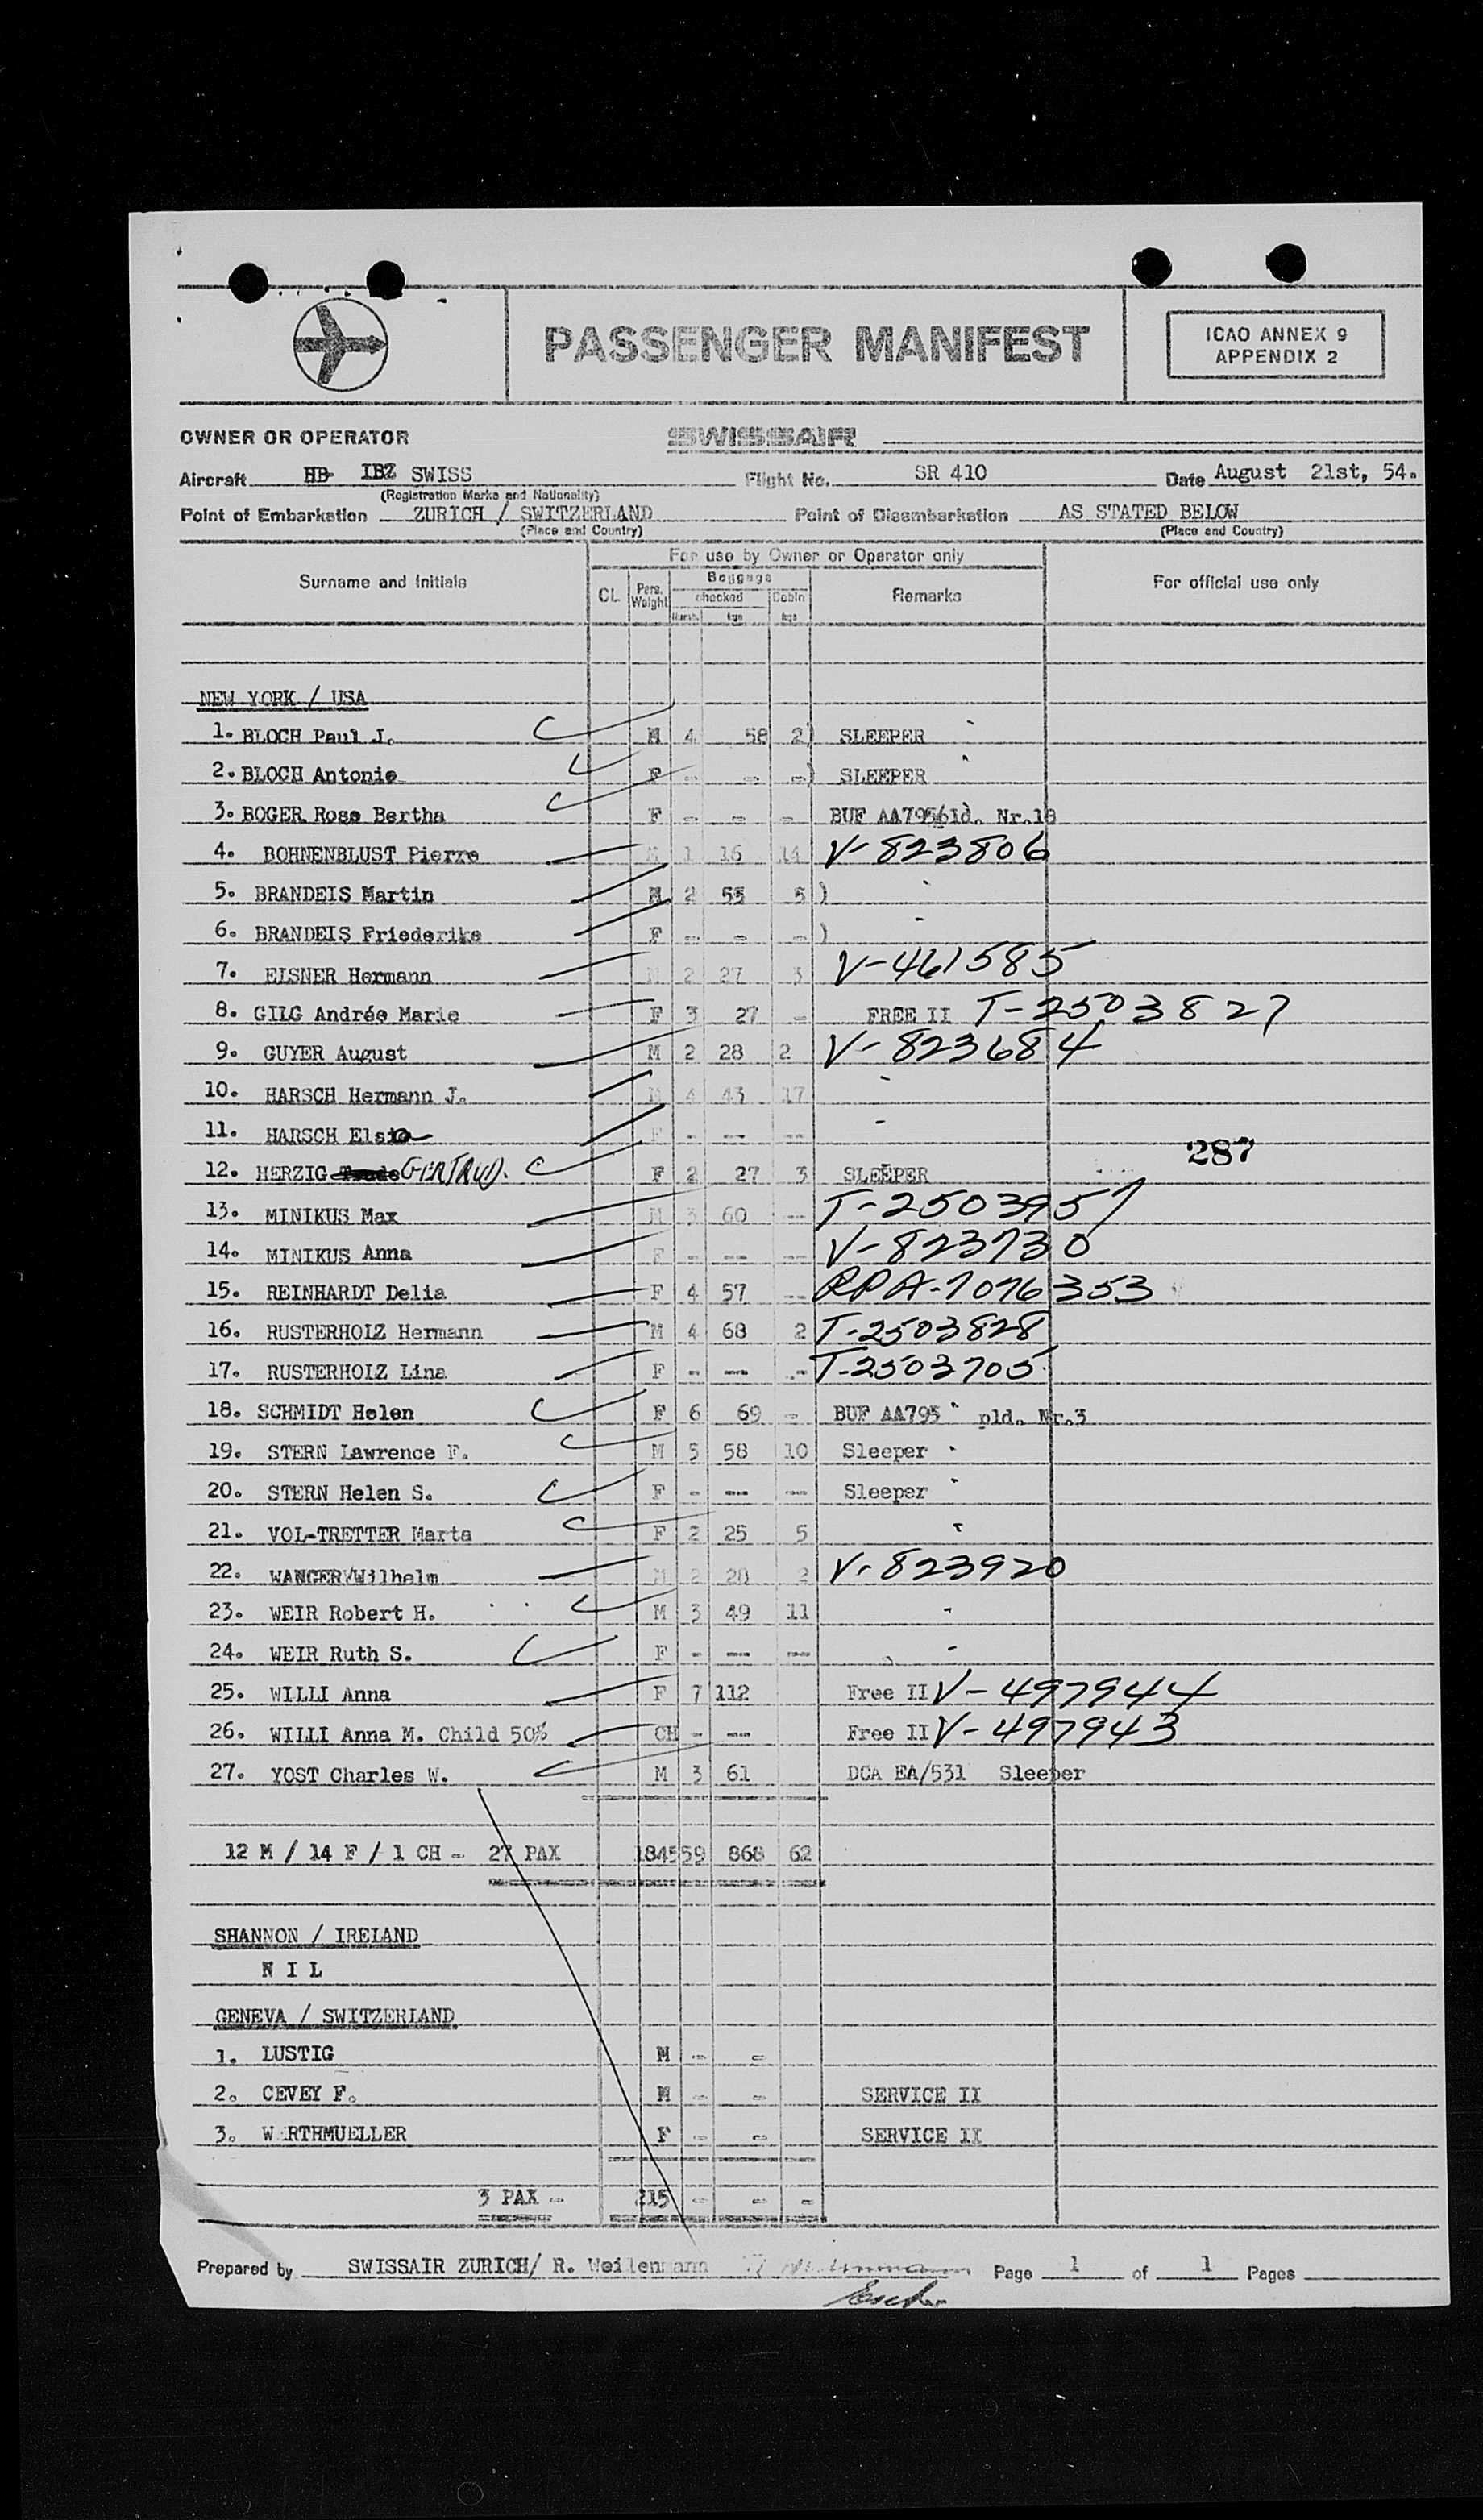 PASSENGER MANIFEST
ICAO ANNEX 9
APPENDIX 2
OWNER OR OPERATOR SWISSAIR
Aircraft HB- IBZ SWISS Flight No. SR 410 Date August 21st, 54.
(Registration Marks and Nationality)
Point of Embarkation ZURICH / SWITZERLAND Point of Disembarkation AS STATED BELOW
(Place and Country) (Place and Country)
For use by Owner or Operator only
Surname and Initials CL Pers. Weight Baggage checked Numb. kgs Cabin kgs Remarks For official use only
NEW YORK / USA
1. BLOCH Paul J. M 4 58 2) SLEEPER
2. BLOCH Antonie F - - -) SLEEPER
3. BOGER Rose Bertha F - - - BUF AA795 pld. Nr.18
4. BOHNENBLUST Pierre M 1 16 14 V-823806
5. BRANDEIS Martin M 2 55 5 )
6. BRANDEIS Friederike F - - - )
7. EISNER Hermann M 2 27 3 V-461585
8. GILG Andrée Marie F 3 27 - FREE II T-2503827
9. GUYER August M 2 28 2 V-823684
10. HARSCH Hermann J. M 4 43 17
11. HARSCH Elsie F - -- --
287
12. HERZIG Trude GERTRUD. F 2 27 3 SLEEPER
13. MINIKUS Max M 3 60 -- T-2503957
14. MINIKUS Anna F - -- -- V-823730
15. REINHARDT Delia F 4 57 -- RPA-1076353
16. RUSTERHOLZ Hermann M 4 68 2 T-2503828
17. RUSTERHOLZ Lina F - -- -- T-2503705
18. SCHMIDT Helen F 6 69 - BUF AA795 pld. Nr.3
19. STERN Lawrence F. M 5 58 10 Sleeper
20. STERN Helen S. F - -- -- Sleeper
21. VOL-TRETTER Marta F 2 25 5
22. WANGER/Wilhelm M 2 28 2 V-823920
23. WEIR Robert H. M 3 49 11
24. WEIR Ruth S. F - -- --
25. WILLI Anna F 7 112 Free II V-497944
26. WILLI Anna M. Child 50% CH - -- Free II V-497943
27. YOST Charles W. M 3 61 DCA EA/531 Sleeper
12 M / 14 F / 1 CH - 27 PAX 1845 59 868 62
SHANNON / IRELAND
N I L
GENEVA / SWITZERLAND
1. LUSTIG M - -
2. CEVEY F. M - - SERVICE II
3. W RTHMUELLER F - - SERVICE II
3 PAX - 215 - - -
Prepared by SWISSAIR ZURICH/ R. Weilenmann Page 1 of 1 Pages